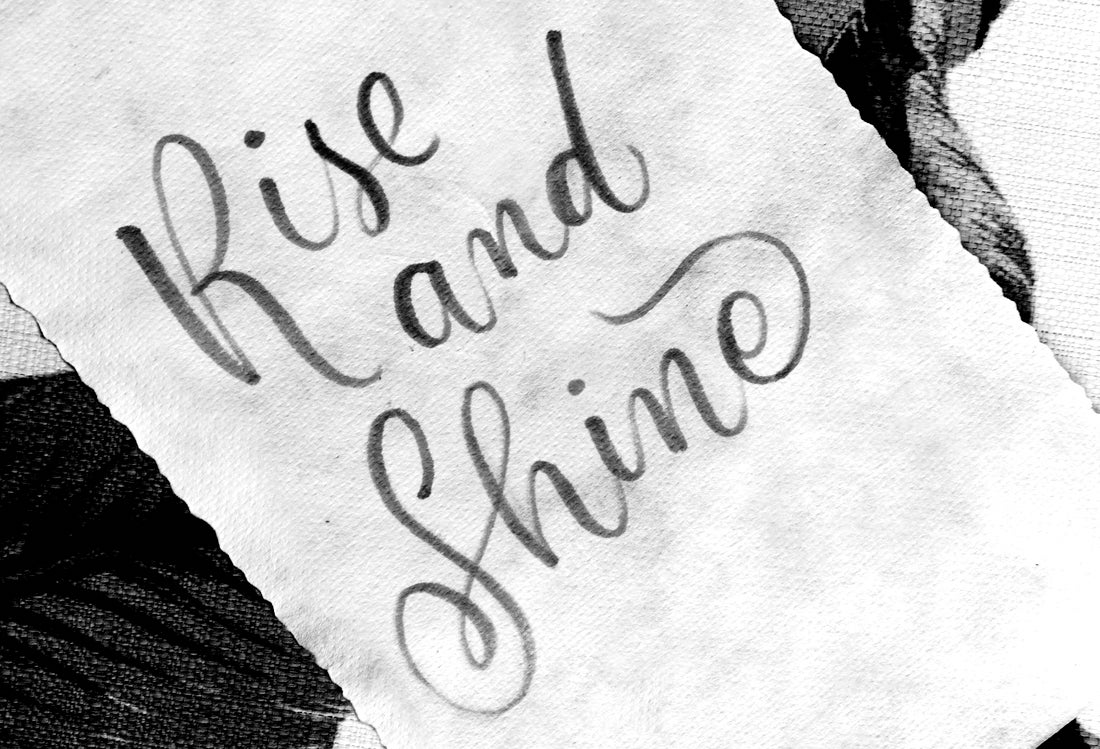 Rise
and
Shine